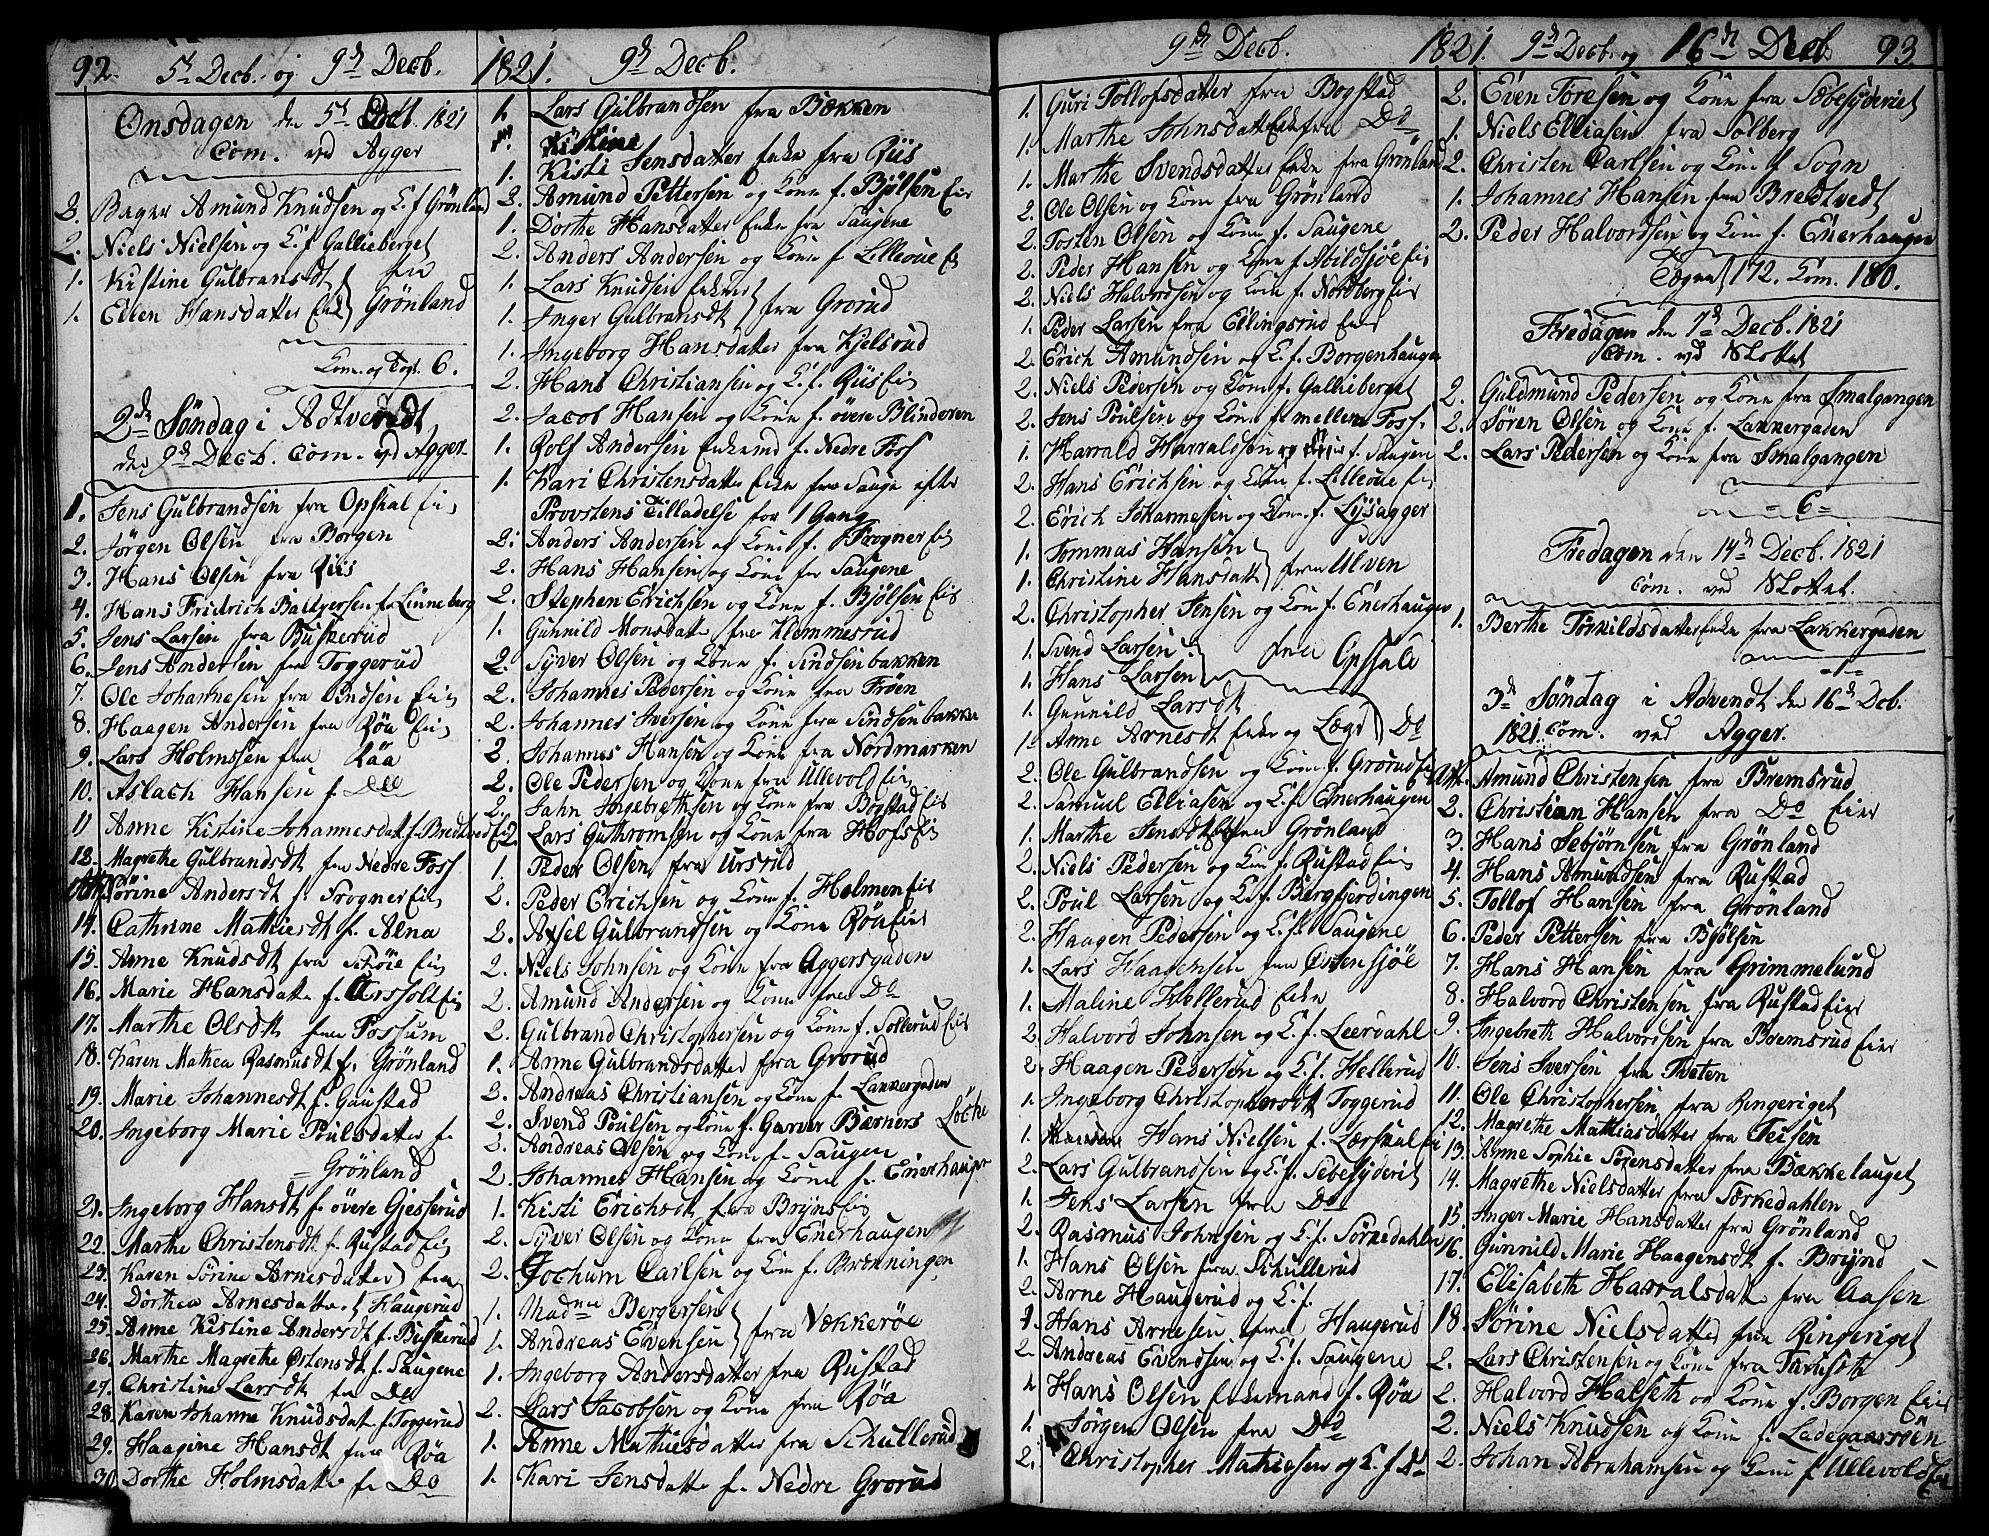 92. 5t Decb. og 9de Decb. 1821. 9de Decb.
Onsdagen den 5t Decb. 1821
Com. ved Agger
2. Bager Amund Knudsen og K. f Grönland
2. Niels Nielsen og K. f Gallieberget
1. Kistine Gulbransdt fra
1. Ellen Hansdatter Enk Grönland
Com. og Togl. 6.
2de Söndag i Adtvendt
den 9de Decb. Com. ved Agger
1. Jens Gulbrandsen fra Opshal Eie
2. Jörgen Olsen fra Borgen
3. Hans Olsen fra Riis
4. Hans Fridrich Baltzersen fr Linneberg
5. Jens Larsen fra Buskerud
6. Jens Andersen fra Toggerud
7. Ole Johannesen fra Sindsen Eie
8. Haagen Andersen fra Röa Eie
9. Lars Holmssen fra Röa
10. Aslach Hansen f. Do
11 Anne Kistine Johannesdat f. Bredtved Eie
12. Magrethe Gulbrandsdt fra Nedre Foss
Sörine Andersdt fr Frogner Eie
14. Cathrine Mathiesdt f. Alna
15. Anne Knudsdt fra Schöie Eie
16. Marie Hansdatte f. Eie
17. Marthe Olsdt fra Fossum
18. Karen Mathea Rasmusdt f. Grönland
19. Marie Johannesdt f. Gaustad
20. Ingeborg Marie Poulsdatter f.
Grönland
21. Ingeborg Hansdt f. övere Gjesserud
22. Marthe Christensdt f. Rustad Eie
23. Karen Sörine Arnesdatter fra
24. Dorthea Arnesdatter Haugerud
25. Anne Kistine Andersdt f. Buskerud
26. Marthe Magrethe Ostensdt f. Saugene
27. Christine Larsdt fra Do
28. Karen Johanne Knudsdat f. Toggerud
29. Haagine Hansdt fra Röa
30. Dorthe Holmsdatter f. Do
1. Lars Gulbrandsen fra Bækken
Kistine
1. Kisti Jensdatter Enke fra Riis
2. Amund Pettersen og Kone f. Bjölsen Eie
1. Dorthe Hansdatter Enke fra Saugene
2. Anders Andersen og Kone f. Lilleoue Eie
1. Lars Knudsen Enkemd fra Grorud
1. Inger Gulbransdt
1. Ingeborg Hansdatter fra Kjelsrud
2. Hans Christiansen og K. f. Riis Eie
2. Jacob Hansen og Kone f. övre Blinderen
1. Rolf Andersen Enkemd f. Nedre Foss
1. Kari Christensdatter Enke fra Sauge efter
Provstens Tilladelse for 1 Gang
2. Anders Andersen og Kone f. Frogner Eie
2. Hans Hansen og Kone fr Saugene
2. Stephen Erichsen og Kone f. Bjölsen Eie
1. Gunnild Monsdatter fra Klemmesrud
2. Syver Olsen og Kone f. Sindsenbakken
2. Johannes Pedersen og Kone fra Fröen
2. Johannes Iversen og Kone fra Sindsenbakke
2. Johannes Hansen og Kone fra Nordmarken
2. Ole Pedersen og Kone fra Ullevold Eie
2. Jahn Ingebrethsen og Kone fra Bogstad Eie
2. Lars Guthromsen og Kone fra Hofs Eie
1. Peder Olsen fra Ursrud
2. Peder Erichsen og Kone f. Holmen Eie
2. Axsel Gulbrandsen og Kone Röa Eie
2. Niels Johnsen og Kone fra Aggersgaden
2. Amund Andersen og Kone fra Do
2. Gulbrand Christophersen og Kone f. Sollerud Eie
1. Anne Gulbrandsdatter fra Grorud
2. Andreas Christiansen og Kone f. Lakkergaden
2. Svend Poulsen og Kone f. Garver Bærners Löcke
2. Andreas Olsen og Kone f. Saugen
2. Johannes Hansen og Kone f. Enerhaugen
1. Kisti Erichsdt fra Bryns Eie
2. Syver Olsen og Kone fra Enerhaugen
2. Jochum Carlsen og Kone f. Brænningen
1. Madme Bergersen fra Vækkeröe
1. Andreas Evensen
1. Ingeborg Andersdatter fra Rustad
2. Lars Jacobsen og Kone fra Röa
1. Anne Mathiesdatter fra Schullerud
1. Kari Jensdatter f. Nedre Grorud
9de Decb. 1821. 9de Decb. og 16de Decb. 93.
1. Guri Tollofsdatter fra Bogstad
1. Marthe Johnsdatt Enke fra Do
1. Marthe Svendsdatter Enke fra Grönland
2. Ole Olsen og Kone fra Grönland
2. Tosten Olsen og Kone f. Saugene
2. Peder Hansen og Kone f. Abildsjöe Eie
2. Niels Halvordsen og Kone f. Nordberg Eie
1. Peder Larsen fra Ellingsrud Eier
2. Erich Amundsen og K. f. Borgenhaugen
2. Niels Pedersen og Kone f. Gallieberget
2. Jens Poulsen og Kone f mellem Foss.
1. Harrald Harraldsen f. Saugen
2. Hans Erichsen og Kone f. Lilleoue Eie
2. Erich Johannesen og Kone f. Lysagger
1. Tommas Hansen fra Ulven
1. Christine Hansdatt
2. Christopher Jensen og Kone f. Enerhaugen
1. Svend Larsen fra Opssale
1. Hans Larsen
1. Gunnild Larsdt
1. Anne Arnesdt Enke og Lægd Do
2. Ole Gulbrandsen og Kone f. Grorud Eie
2. Samuel Elliasen og K. f. Enerhaugen
1. Marthe Jensdt fra Grönland
2. Niels Pedersen og Kone f. Rustad Eie
2. Poul Larsen og K. f. Bergfierdingen
2. Haagen Pedersen og K. f. Saugene
1. Lars Haagensen fra Ostensjöe
1. Maline Hellerud Enke
2. Halvord Johnsen og K. f. Leerdahl
2. Haagen Pedersen og K. f. Hellerud
1. Ingeborg Christophersdt Toggerud
1. Hans Nielsen f. Lerskal Eie
2. Lars Gulbrandsen og K. f. Sebesyderiet
1. Jens Larsen fra Do
2. Rasmus Johnsen og K. f. Sörkedahlen
1. Hans Olsen fra Schullerud
2. Arne Haugerud og K. f.
1. Hans Arnesen fra Haugerud
2. Andreas Evendsen og K. f. Saugene
1 Hans Olsen Enkemand f. Röa
1. Jörgen Olsen fra Do
2. Christopher Mathiesen og K. f Do
2. Even Toresen og Kone fra Sæbesyderiet
1. Niels Elliasen fra Solberg
2. Christen Carlsen og Kone f. Sogn
1. Johannes Hansen fra Bredtvedt
2. Peder Halvordsen og Kone f. Enerhaugen
Togna 172. Com. 180.
Fredagen den 7de Decb. 1821
Com. ved Slottet
2. Guldmund Pedersen og Kone fra Smalgangen
2. Sören Olsen og Kone f. Lakkergaden
2. Lars Pedersen og Kone fra Smalgangen
6
Fredagen den 14de Decb. 1821
Com. ved Slottet.
1. Berthe Törkildsdatter Enke fra Lakkergaden
1
3de Söndag i Advendt den 16de Decb.
1821. Com. ved Agger.
Amund Christensen fra Bremsrud
2. Christian Hansen fra Do Eier
3. Hans Sebjörnsen fra Grönland
4. Hans Amundsen fra Rustad
5. Tollof Hansen fra Grönland
6. Peder Pettersen fra Bjölsen
7. Hans Hansen fra Grimmelund
8. Halvord Christensen fra Rustad Eier
9. Ingebreth Halvordsen fra Bremsrud Eier
10. Jens Iversen fra Tveten
11. Ole Christophersen fra Ringeriget
12. Magrethe Mathiasdatter fra Teisen
13. Anne Sophie Sörensdatter fra Bækkelauget
14. Magrethe Nielsdatter fra Sörkedahlen
15. Inger Marie Hansdatter fra Grönland
16. Gunnild Marie Haagensdt f. Brynd
17. Elisabeth Harralsdat fra Aasen
18. Sörine Nielsdatter fra Ringeriget
2. Lars Christensen og Kone fra
2. Halvord Halseth og Kone f. Borgen Eie
2. Niels Knudsen og Kone f. Ladegaarsöen
2. Johan Abrahamsen og Kone f Ullevold Eie